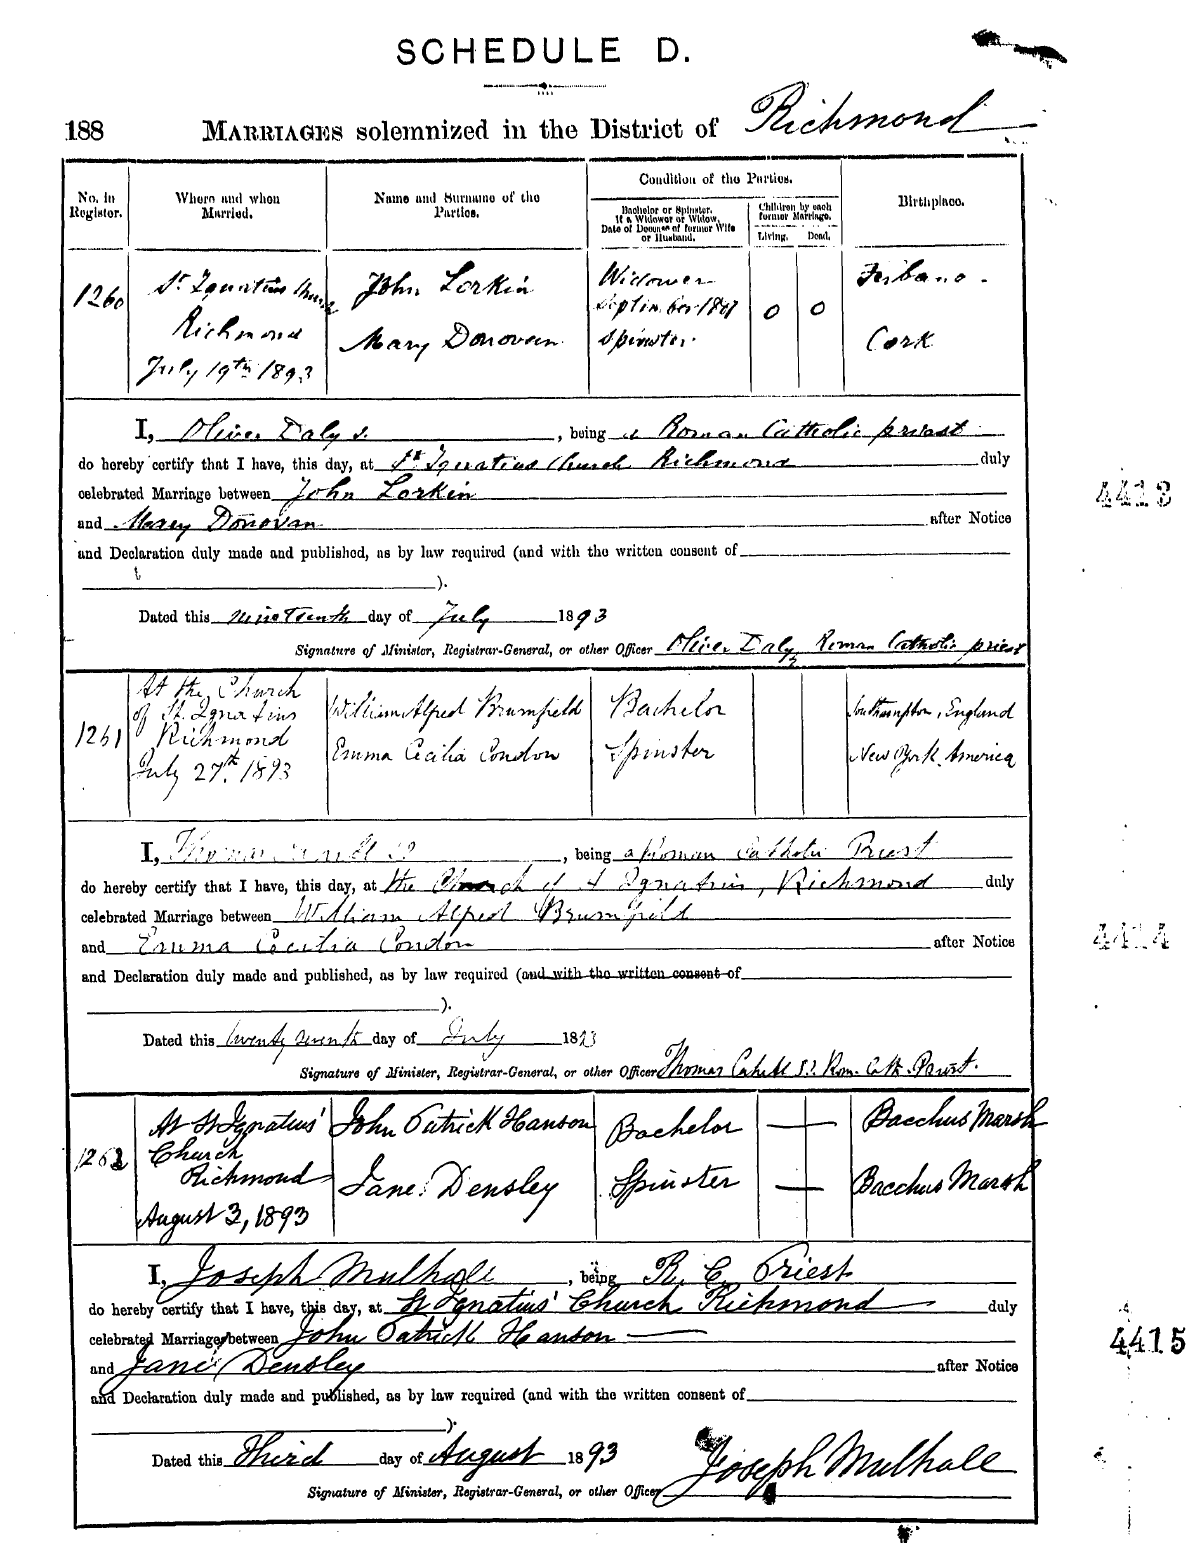 SCHEDULE D.
188 MARRIAGES solemnized in the District of Richmond
No. in Register.
Where and when Married.
Name and Surname of the Parties.
Condition of the Parties.
Bachelor or Spinster. If a Widower or Widow, Date of Decease of former Wife or Husband.
Children by each former Marriage.
Living. Dead.
Birthplace.
1260
St Ignatius Church
Richmond
July 19th 1893
John Lorkin
Mary Donovan
Widower
September
Spinster
0 0
Ferbane
Cork
I, Oliver Daly , being a Roman Catholic priest
do hereby certify that I have, this day, at St Ignatius Church Richmond duly
celebrated Marriage between John Lorkin
and Mary Donovan after Notice
and Declaration duly made and published, as by law required (and with the written consent of
).
Dated this nineteenth day of July 1893
Signature of Minister, Registrar-General, or other Officer Oliver Daly Roman Catholic priest
4413
1261
At the Church
of St. Ignatius
Richmond
July 27th. 1893
William Alfred Brumfield
Emma Cecilia Condon
Bachelor
Spinster
Southampton, England
New York. America
I, Thomas , being a Roman Catholic Priest
do hereby certify that I have, this day, at the Church of St Ignatius, Richmond duly
celebrated Marriage between William Alfred Brumfield
and Emma Cecilia Condon after Notice
and Declaration duly made and published, as by law required (and with the written consent of
).
Dated this twenty seventh day of July 1893
Signature of Minister, Registrar-General, or other Officer Thomas Cahill S.J. Rom. Cath. Priest.
4414
1262
At St Ignatius'
Church
Richmond
August 3, 1893
John Patrick Hanson
Jane Densley
Bachelor
Spinster
Bacchus Marsh
Bacchus Marsh
I, Joseph Mulhall , being R. C. Priest
do hereby certify that I have, this day, at St Ignatius' Church Richmond duly
celebrated Marriage between John Patrick Hanson
and Jane Densley after Notice
and Declaration duly made and published, as by law required (and with the written consent of
).
Dated this Third day of August 1893
Joseph Mulhall
Signature of Minister, Registrar-General, or other Officer
4415